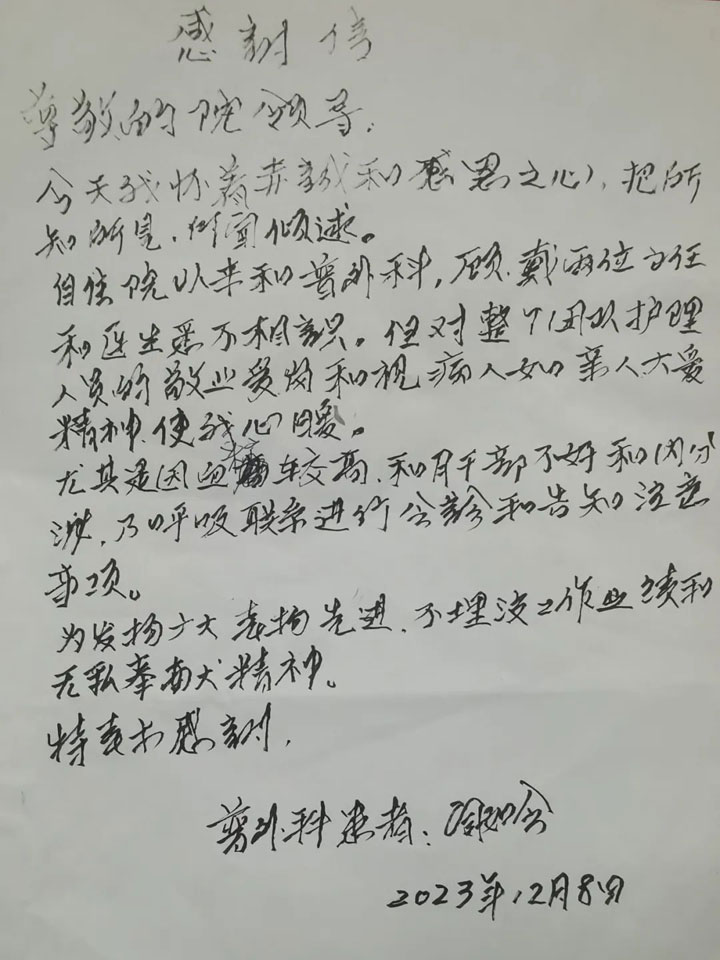 感谢信
尊敬的院领导:
今天我怀着赤诚和感恩之心,把所
知所见、倾述。
自住院以来和普外科,顾、戴两位主任
和医生素不相识。但对整个团队护理
人员的敬业爱岗和视病人如亲人大爱
精神、使我心暖。
尤其是因血糖较高、和肺部不好和内分
泌,乃呼吸联系进行会诊和告知注意
事项。
为发扬广大表扬先进、不埋没工作业绩和
无私奉献精神。
特表示感谢,
普外科患者:
2023年12月8日